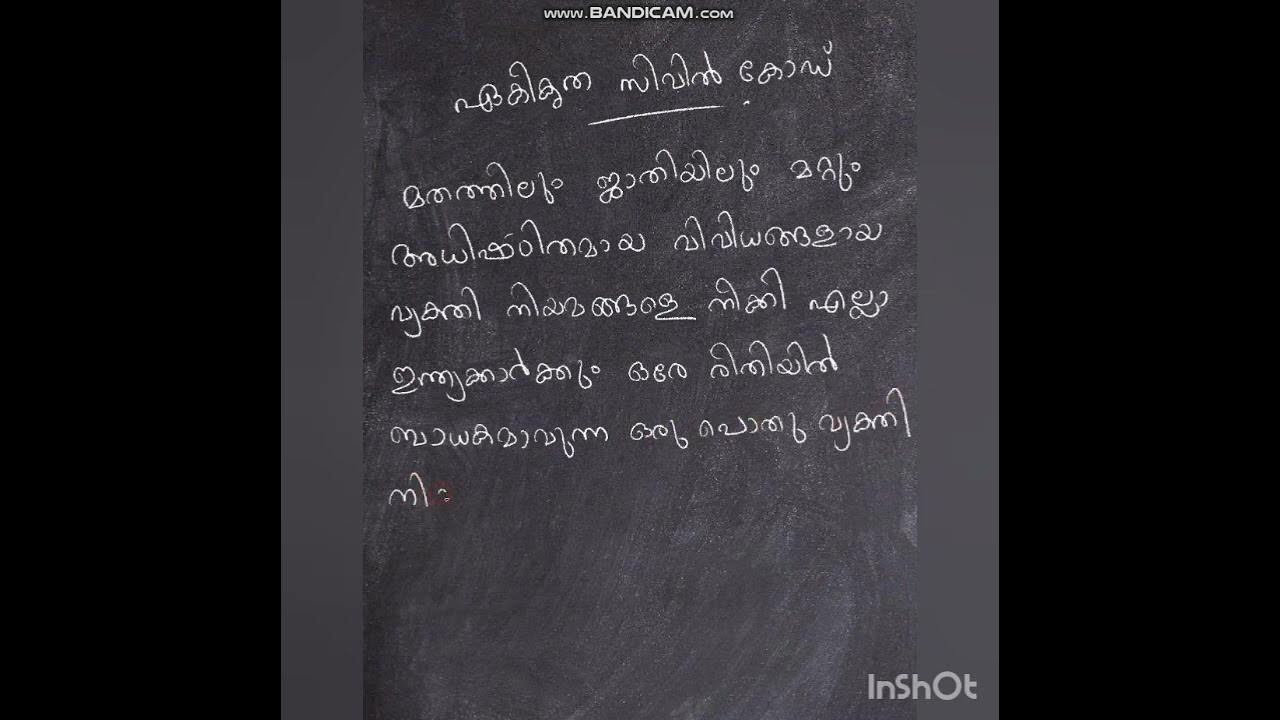 www.BANDICAM.com
ഏകീകൃത സിവിൽ കോഡ്
മതത്തിലും ജാതിയിലും മറ്റും
അധിഷ്ഠിതമായ വിവിധങ്ങളായ
വ്യക്തി നിയമങ്ങളെ നീക്കി എല്ലാ
ഇന്ത്യക്കാർക്കും ഒരേ രീതിയിൽ
ബാധകമാവുന്ന ഒരു പൊതു വ്യക്തി
നി
InShOt